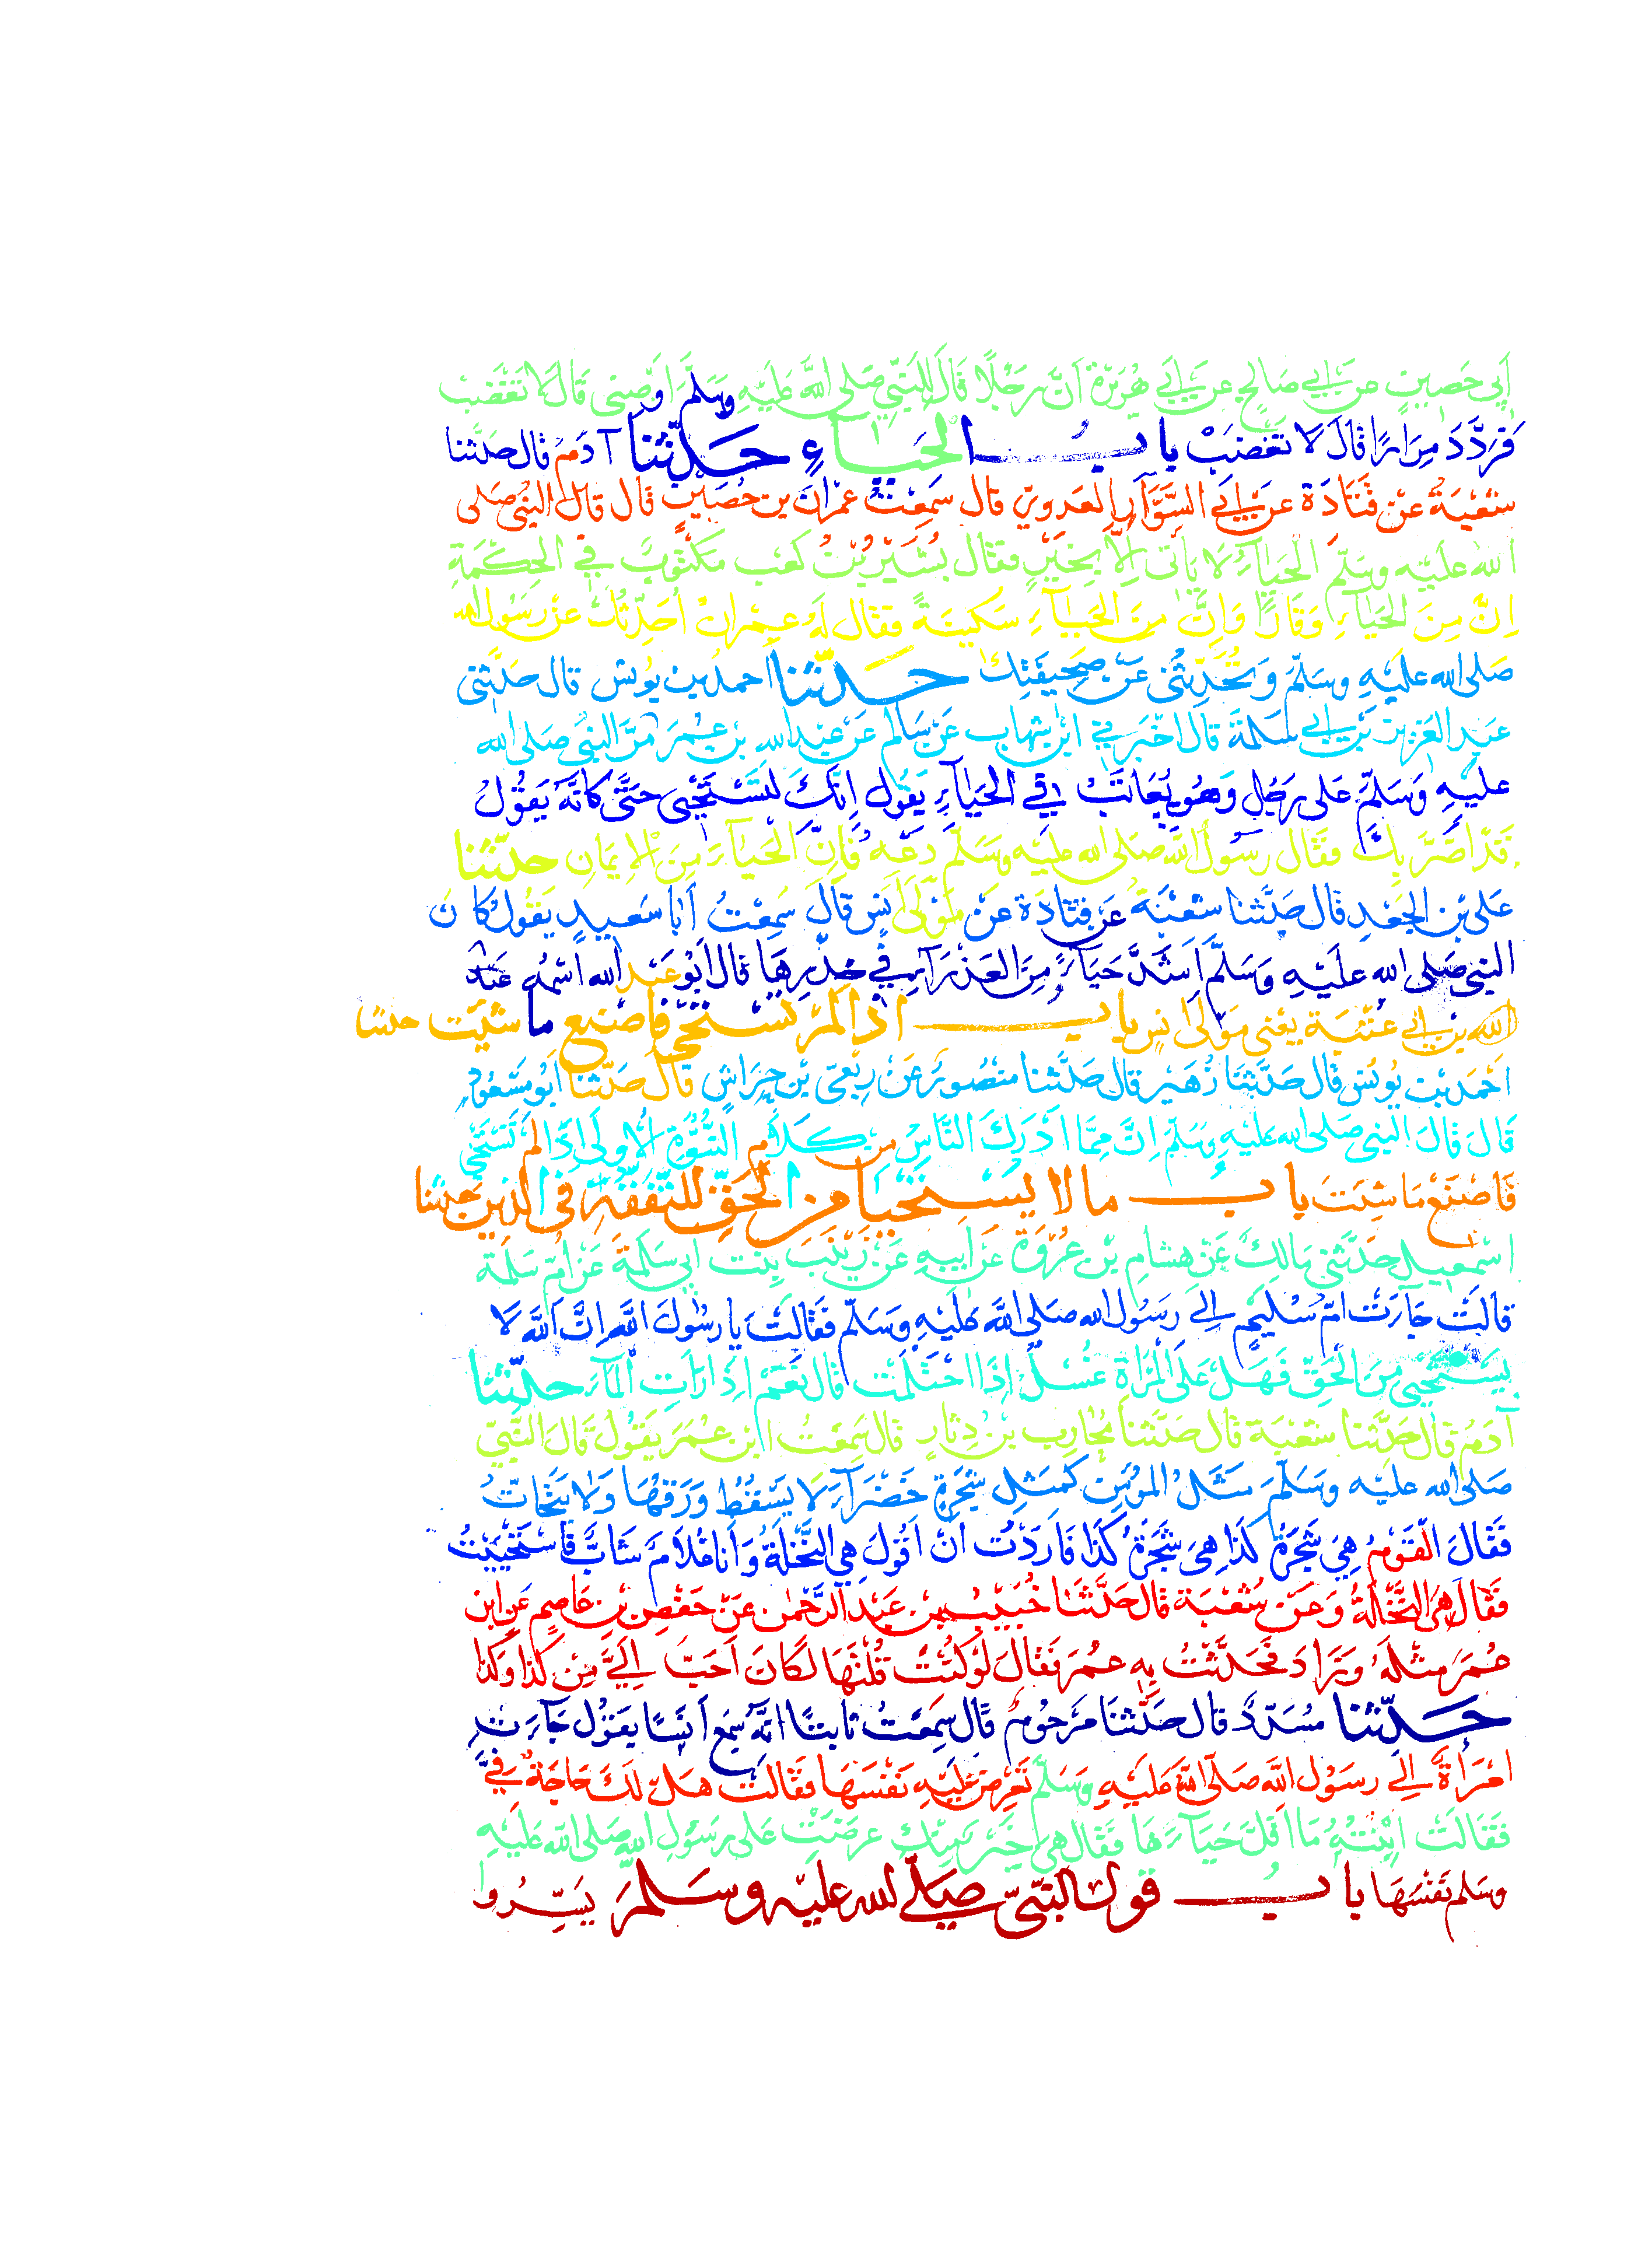 أَبِي حَصِينٍ عن أبي صَالِحٍ عن أبي هُرَيْرَةَ أنَّ رَجُلًا قَالَ لِلنَّبِيِّ صَلى اللهُ عَلَيْهِ وَسَلَّمَ أَوْصِنِي قَالَ لَا تَغْضَبْ
فَرَدَّدَ مِرَارًا قَالَ لَا تَغْضَبْ باب الحَيَاءِ حَدَّثَنَا آدَمُ قال حَدَّثَنا
شُعْبَةُ عَنْ قَتَادَةَ عَنْ أَبِي السَّوَّارِ العَدَوِيّ قال سَمِعْتُ عِمْرَانَ بن حُصَيْنٍ قال قال النبي صَلى
الله عَلَيْهِ وسَلّم الحَيَاءُ لا يَأتى إلّا بِخَيْرٍ فقال بُشَيْرُ بْنُ كَعْب مَكْتُوبٌ فِي الحِكْمَةِ
إنَّ مِنَ الحَيَاءِ وَقَارًا وَإِنَّ مِنَ الحَيَاءِ سَكِينَةً فقال لَهُ عِمْرانُ أُحَدِّثُكَ عَنْ رَسُول الله
صَلى الله عَلَيْهِ وسَلّمَ وَتُحَدِّثُنِى عَنْ صَحِيفَتِكَ حَدَّثنا احمد بن يُونُس قال حَدَّثنى
عَبدِ العَزِيزِ بْنُ أبي سَلَمَةَ قال اخْبَرني ابْنُ شِهَابٍ عَنْ سَالِم عَنْ عَبْدِ اللهِ بن عُمَرَ مَرَّ النبيُ صَلى الله
عليهِ وَسَلَّم عَلى رَجُلٍ وَهُو يُعَاتَبُ فِي الحَيَاءِ يَقُول إِنَّكَ لَتَسْتَحْيِى حَتَّى كَأَنَّهُ يَقُوْلُ
قَدْ أَضَرَّ بِكَ فَقَال رَسُولُ اللهِ صَلى الله عليه وسَلّم دَعْهُ فَإِنَّ الحَيَاءَ مِنَ الْإِيمَانِ حدّثنا
عَلى بْن الجَعْدِ قال حَدَّثَنا شُعْبَةُ عَنْ قَتَادَةَ عَنْ مَوْلَى أَنَسٍ قالَ سَمِعْتُ أَبَا سَعِيدٍ يَقُولُ كَانَ
النبي صَلى الله عَلَيْهِ وَسَلَّم أَشَدَّ حَيَاءً مِنَ العَذْرَاءِ فِي خِدْرِهَا قال أَبُو عَبْدِ الله اسْمُهُ عَبْدُ
الله بن أبي عُتْبَةَ يعنى مَوْلَى أنس باب اذا لم تستحي فاصنع ما شئت حدثنا
أحْمَد بن يُونُس قال حَدَّثَنَا زُهَيْر قال حَدَّثنا مَنصُورٌ عَنْ رِبْعِىّ بْن حِرَاشٍ قال حَدَّثنا أَبُو مَسْعُودٍ
قالَ قالَ النبي صَلى الله عَلَيْهِ وسَلّم إنَّ مِمَّا أَدْرَكَ النَّاسُ مِن كَلَامِ النُّبُوَّةِ الْأُولَى إِذَا لَمْ تَسْتَحْي
فَاصْنَعْ مَا شِئْتَ باب ما لا يُسْتَحْيَا من الحَقِّ للتَّفَقُّهِ في الدين حدثنا
إسْمعيل حَدَّثَنى مَالِكٌ عَنْ هشامِ بْنِ عُرْوَةَ عَنْ أبيهِ عَنْ زَيْنَبَ بِنْت أبي سَلَمَةَ عَنْ أُمِّ سَلَمَةَ
قالَتْ جَاءَتْ أُمُّ سُلَيْمٍ إِلى رَسُول الله صَلى اللهُ عَلَيْهِ وَسَلّم فَقَالَتْ يَا رَسُولَ اللهِ إِنَّ اللهَ لَا
يَسْتَحْيِى مِنَ الْحَقِّ فَهَلْ عَلَى المَرْأَةِ غُسْلٌ إِذَا احْتَلَمَتْ قال نَعَمْ إِذَا رَأَتِ المَاءَ حدّثنا
آدَمُ قال حَدَّثَنا شُعْبَة قال حَدَّثَنَا مُحَارِبُ بْنُ دِثَارٍ قال سَمِعْتُ ابْنَ عُمَرَ يَقُولُ قَالَ النَّبِيّ
صَلى الله عليه وسَلّمَ مَثَلُ المُؤْمِنِ كَمَثَلِ شَجَرَةٍ خَضْرَاءَ لا يَسْقُطُ وَرَقُهَا وَلَا يَتَحَاتُّ
فَقَالَ الْقَوْمُ هِيَ شَجَرَةُ كَذَا هِيَ شَجَرَةُ كَذَا فَأَرَدْتُ أنْ أَقُولَ هِيَ النَّخْلَةُ وَأَنَا غُلَامٌ شَابٌّ فَاسْتَحْيَيْتُ
فَقَالَ هِيَ النَّخْلَةُ وَعَنْ شُعْبَةَ قال حَدَّثَنَا خُبَيْب بن عَبْد الرَّحْمٰن عَنْ حَفْصِ بْن عَاصِمٍ عَنِ ابن
عُمَرَ مِثْلَهُ وَزَادَ فَحَدَّثْتُ بِهِ عُمَرَ فَقَالَ لَوْ كُنْتَ قُلْتَهَا لَكَانَ أَحَبَّ إِلَيَّ مِنْ كَذَا وَكَذَا
حَدّثنا مُسَدَّدٌ قال حَدَّثَنَا مَرْحُومٌ قَالَ سَمِعْتُ ثَابِتًا أَنَّهُ سَمِعَ أَنَسًا يَقُوْل جَاءَتِ
امْرَأَةٌ إِلى رَسُولِ اللهِ صَلى اللهُ عَلَيْهِ وَسَلّم تَعْرِضُ عَلَيْهِ نَفْسَهَا فَقَالَتْ هَلْ لَكَ حَاجَةٌ فِيَّ
فَقَالَتْ ابْنَتُهُ مَا أَقَلَّ حَيَاءَهَا فَقَالَ هِيَ خَيْرٌ مِنْكِ عَرَضَتْ عَلى رَسُولِ اللهِ صَلى الله عَلَيْهِ
وسَلم نَفْسَهَا باب قول النبيّ صلى الله عليه وسلم يَسِّرُوا